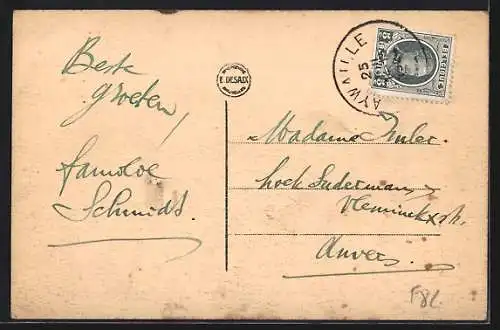 Beste
groeten,
familie
Schmidt.
E. DESAIX
AYWAILLE
25
BELGIQUE
Madame
hoek Suderman
Vleminckxstr.
Anvers